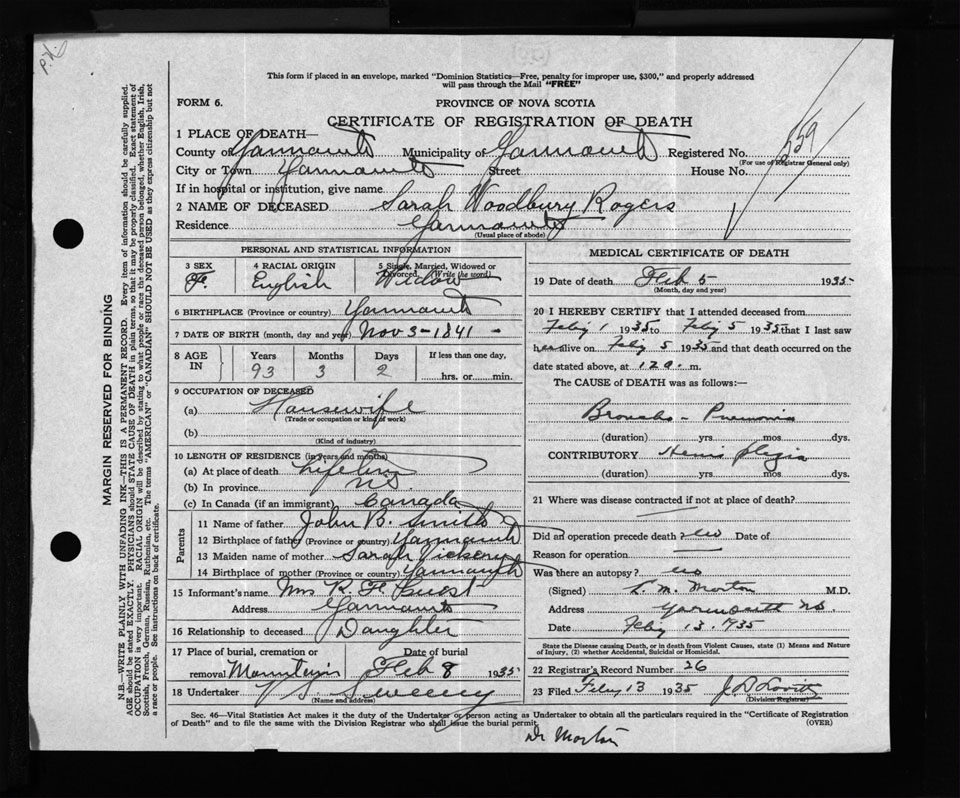 This form if placed in an envelope, marked "Dominion Statistics—Free, penalty for improper use, $300," and properly addressed
will pass through the Mail "FREE"
FORM 6.
PROVINCE OF NOVA SCOTIA
CERTIFICATE OF REGISTRATION OF DEATH
1 PLACE OF DEATH—
County of Yarmouth Municipality of Yarmouth Registered No. 559
(For use of Registrar General only)
City or Town Yarmouth Street House No.
If in hospital or institution, give name
2 NAME OF DECEASED Sarah Woodbury Rogers
Residence Yarmouth
(Usual place of abode)
PERSONAL AND STATISTICAL INFORMATION
3 SEX 4 RACIAL ORIGIN 5 Single, Married, Widowed or
Divorced (Write the word)
Fe English Widow
6 BIRTHPLACE (Province or country) Yarmouth
7 DATE OF BIRTH (month, day and year) Nov 3-1841-
8 AGE IN Years Months Days If less than one day,
93 3 2 hrs. or min.
9 OCCUPATION OF DECEASED
(a) Housewife
(Trade or occupation or kind of work)
(b)
(Kind of industry)
10 LENGTH OF RESIDENCE (in years and months)
(a) At place of death Lifetime
(b) In province NS
(c) In Canada (if an immigrant) Canada
Parents
11 Name of father John B. Smith
12 Birthplace of father (Province or country) Yarmouth
13 Maiden name of mother Sarah Vickery
14 Birthplace of mother (Province or country) Yarmouth
15 Informant's name Mrs R. H.
Address Yarmouth
16 Relationship to deceased Daughter
17 Place of burial, cremation or Date of burial
removal Mountain Feb 8 1935
18 Undertaker Sweeny
(Name and address)
MEDICAL CERTIFICATE OF DEATH
19 Date of death Feb 5 1935
(Month, day and year)
20 I HEREBY CERTIFY that I attended deceased from
Feby 1 1935 to Feby 5 1935 that I last saw
her alive on Feby 5 1935 and that death occurred on the
date stated above, at 12 a. m.
The CAUSE OF DEATH was as follows:—
Broncho-Pneumonia
(duration) yrs. mos. dys.
CONTRIBUTORY Hemiplegia
(duration) yrs. mos. dys.
21 Where was disease contracted if not at place of death?
Did an operation precede death no Date of
Reason for operation
Was there an autopsy? no
(Signed) L. M. Morton M.D.
Address Yarmouth NS.
Date Feby 13. 1935
State the Disease causing Death, or in Death from Violent Causes, state (1) Means and Nature
of Injury, (2) whether Accidental, Suicidal or Homicidal.
22 Registrar's Record Number 26
23 Filed Feby 13 1935 J. D. Lovitt
(Division Registrar)
Sec. 46—Vital Statistics Act makes it the duty of the Undertaker or person acting as Undertaker to obtain all the particulars required in the "Certificate of Registration
of Death" and to file the same with the Division Registrar who shall issue the burial permit. (OVER)
Dr Morton
MARGIN RESERVED FOR BINDING
N.B.—WRITE PLAINLY WITH UNFADING INK—THIS IS A PERMANENT RECORD. Every item of information should be carefully supplied.
AGE should be stated EXACTLY. PHYSICIANS should STATE CAUSE OF DEATH in plain terms, so that it may be properly classified. Exact statement of
OCCUPATION is very important. RACIAL ORIGIN will be described by stating to what people or race the deceased person belonged, whether English, Irish,
Scottish, French, German, Russian, Ruthenian, etc. The terms "AMERICAN" or "CANADIAN" SHOULD NOT BE USED as they express citizenship but not
a race or people. See instructions on back of certificate.